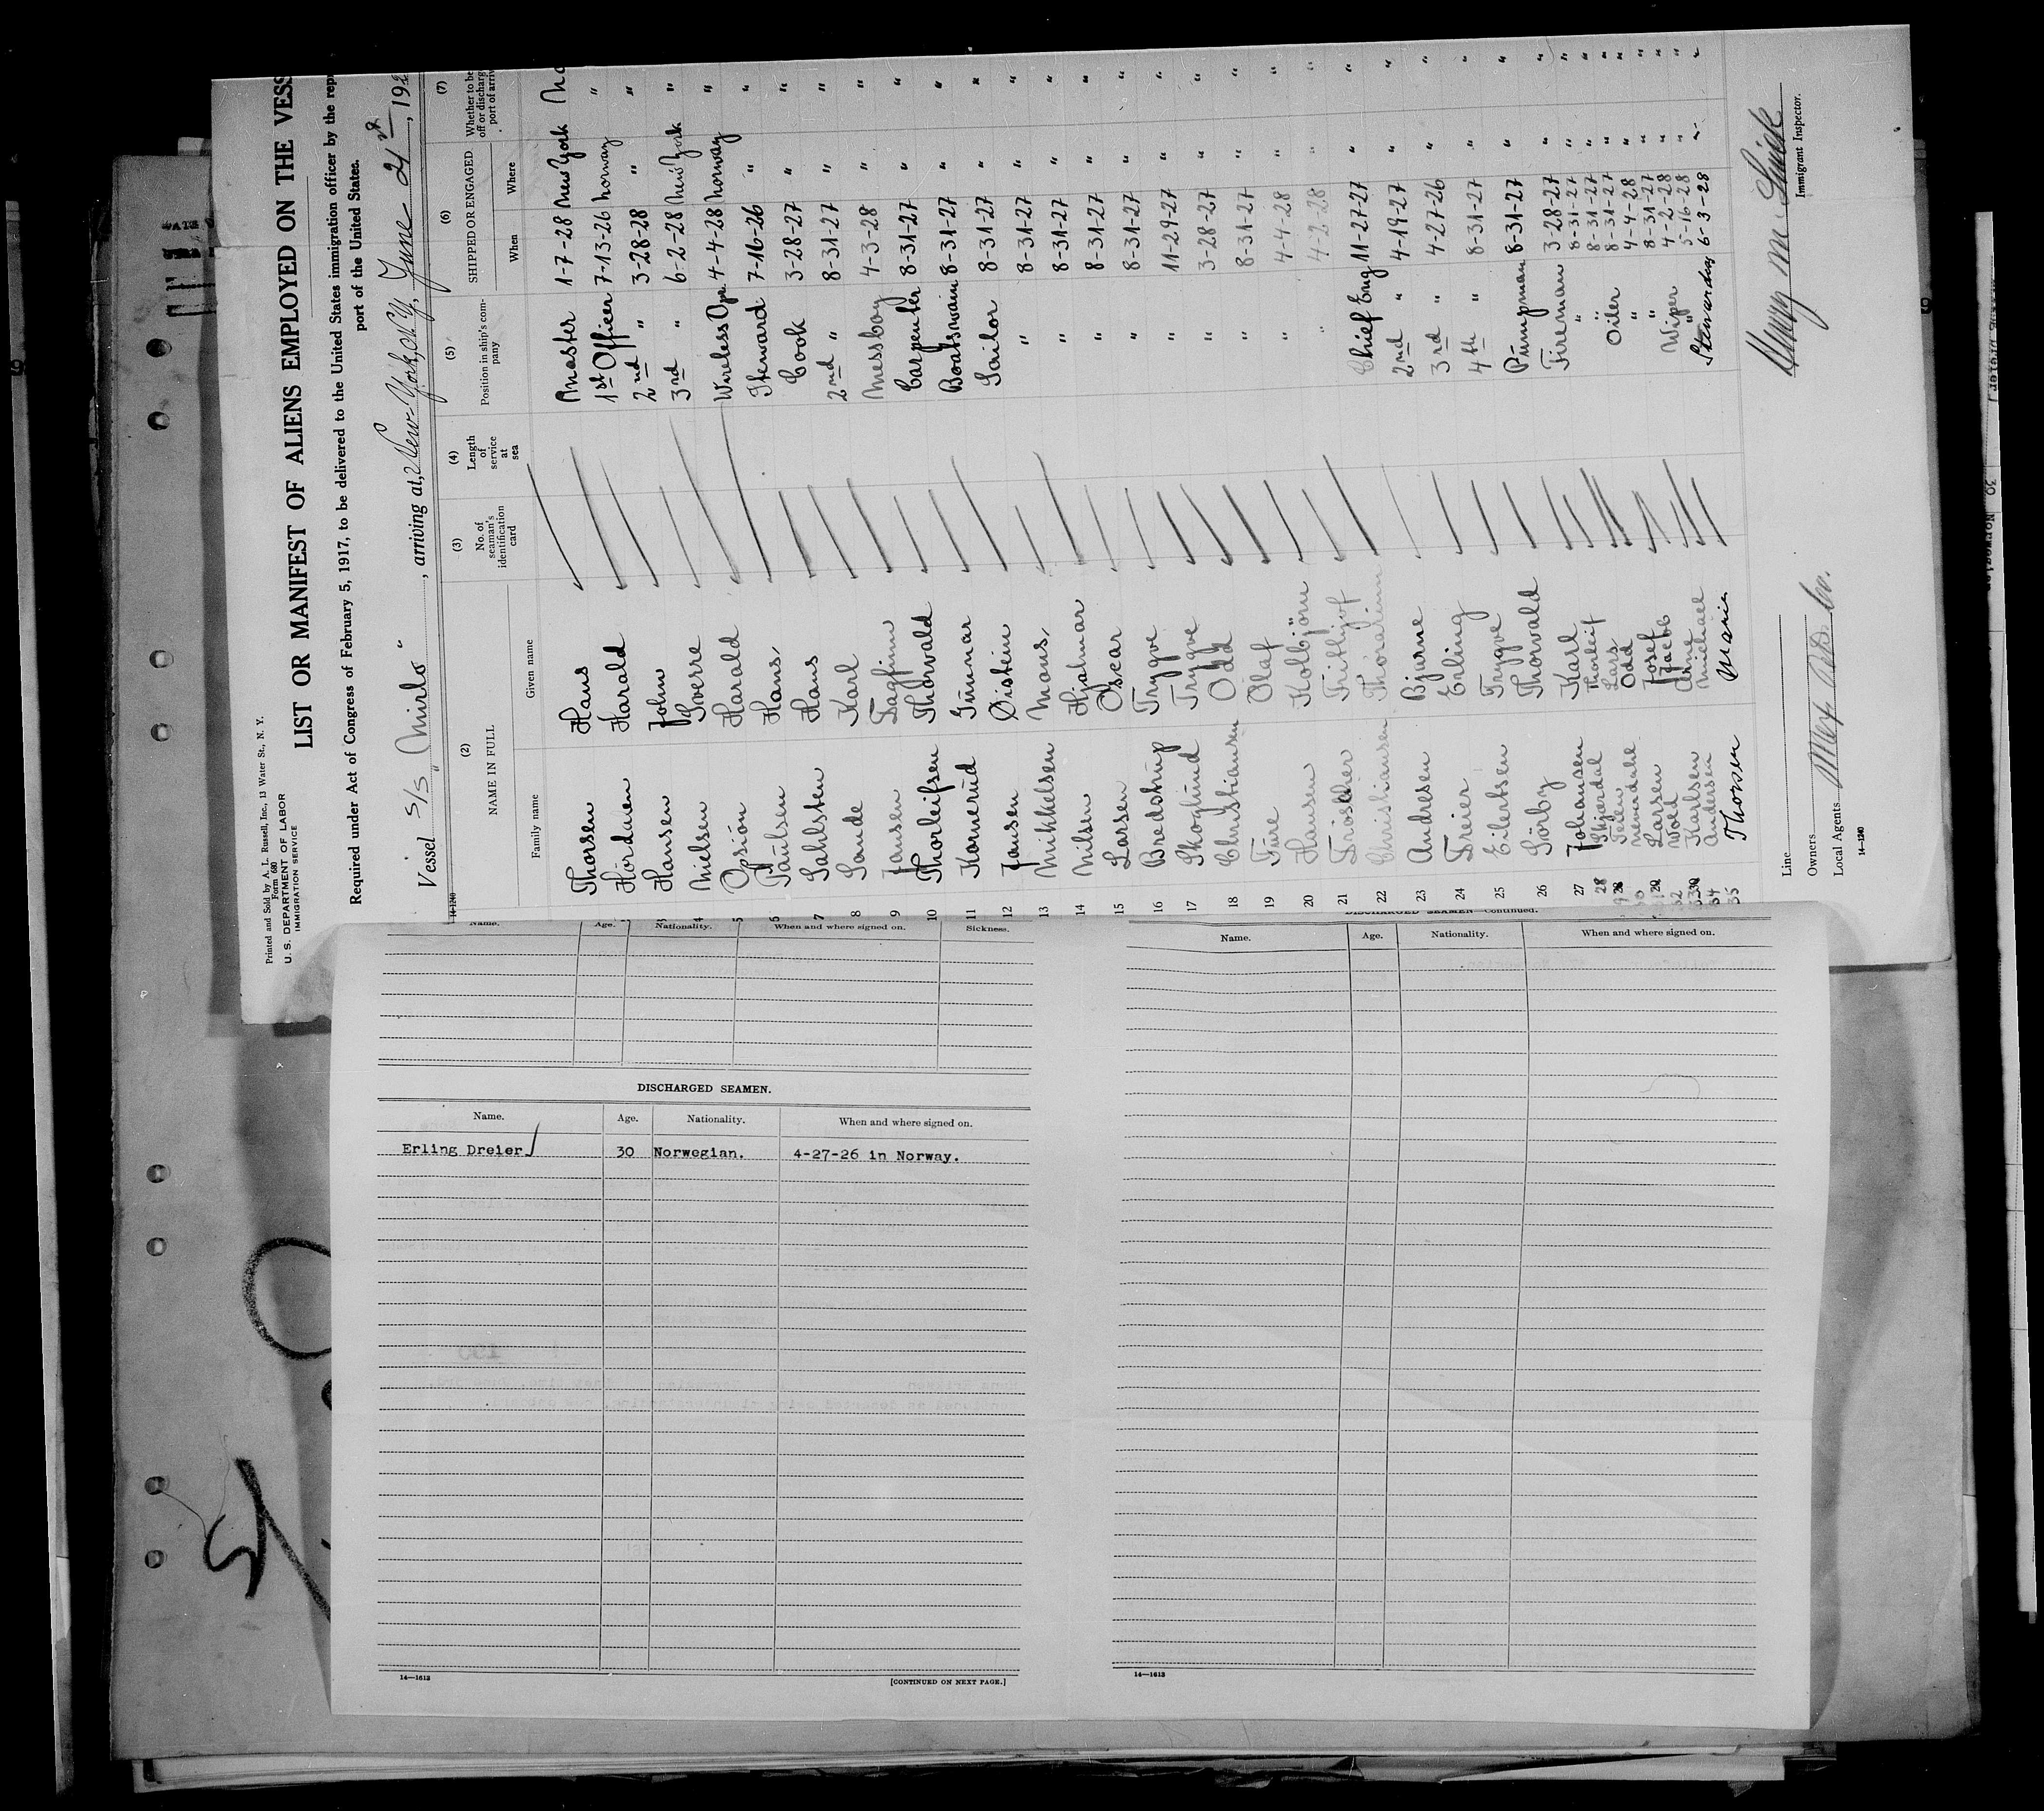 Printed and Sold by A. L. Russell, Inc., 13 Water St., N. Y.
Form 680
U. S. DEPARTMENT OF LABOR
IMMIGRATION SERVICE
LIST OR MANIFEST OF ALIENS EMPLOYED ON THE VESS
Required under Act of Congress of February 5, 1917, to be delivered to the United States immigration officer by the rep
port of the United States.
Vessel S/S "Mirlo", arriving at New-York, N.Y., June 21st, 192
14-1240
(2) (3) (4) (5) (6) (7)
NAME IN FULL No. of seaman's identification card Length of service at sea Position in ship's company SHIPPED OR ENGAGED Whether to be off or discharg port of arriv
Family name Given name When Where
Thorsen Hans Master 1-7-28 New York No
Hördauen Harald 1st Officer 7-13-26 Norway "
3 Hansen John 2nd " 3-28-28 " "
4 Nielsen Sverre 3rd " 6-2-28 New York "
5 Opsión Harald Wireless Opr. 4-4-28 Norway "
6 Paulsen Hans Steward 7-16-26 " "
7 Sahlsten Hans Cook 3-28-27 " "
8 Sande Karl 2nd " 8-31-27 " "
9 Jansen Dagfinn Messboy 4-3-28 " "
10 Thorleifsen Thorvald Carpenter 8-31-27 " "
11 Konnerud Gunnar Boatswain 8-31-27 " "
12 Jansen Øistein Sailor 8-31-27 " "
13 Mikkelsen Mons " 8-31-27 " "
14 Nilsen Hjalmar " 8-31-27 " "
15 Larsen Oscar " 8-31-27 " "
16 Bredstrup Trygve " 8-31-27 " "
17 Skoglund Trygve " 11-29-27 " "
18 Christiansen Odd " 3-28-27 " "
19 Fure Olaf " 8-31-27 " "
20 Hansen Kolbjörn " 4-4-28 " "
21 Troscher Frithjof " 4-2-28 " "
22 Christiansen Thorarinn Chief Eng 11-27-27 " "
23 Andresen Bjarne 2nd " 4-19-27 " "
24 Dreier Erling 3rd " 4-27-26 " "
25 Eilertsen Trygve 4th " 8-31-27 " "
26 Sörby Thorvald Pumpman 8-31-27 " "
27 Johansen Karl Fireman 3-28-27 " "
28 Skjærdal Thorleif " 8-31-27 " "
Lars " 8-31-27 " "
Odd Oiler 8-31-27 " "
Larsen Josef " 4-4-28 " "
32 Wold Jacob " 8-31-27 " "
33 Karlsen Arne Wiper 4-2-28 " "
34 Andersen Michael " 5-16-28 " "
35 Thorsen Maria Stewardess 6-3-28 " "
Line
Owners
Local Agents
14-1240
Immigrant Inspector.
Name. Age. Nationality. When and where signed on. Sickness.
DISCHARGED SEAMEN.
Name. Age. Nationality. When and where signed on.
Erling Dreier 30 Norwegian. 4-27-26 in Norway.
14—1613
[CONTINUED ON NEXT PAGE.]
DISCHARGED SEAMEN—Continued.
Name. Age. Nationality. When and where signed on.
14—1613